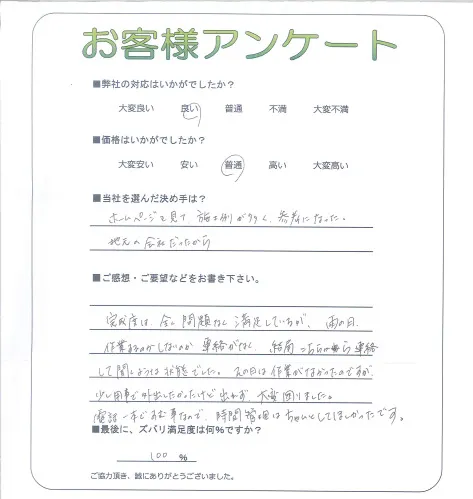 お客様アンケート
■弊社の対応はいかがでしたか？
大変良い 良い 普通 不満 大変不満
■価格はいかがでしたか？
大変安い 安い 普通 高い 大変高い
■当社を選んだ決め手は？
ホームページを見て、施工例が多く、参考になった。
地元の会社だったから
■ご感想・ご要望などをお書き下さい。
完成度は、全く問題なく満足していますが、雨の日、
作業するのかしないのか連絡がなく、結局こちらから連絡
して聞くような状態でした。その日は作業がなかったのですが、
少し用事で外出したかったけど出れず、大変困りました。
電話一本ですむ事なので、時間管理はちゃんとしてほしかったです。
■最後に、ズバリ満足度は何％ですか？
100 %
ご協力頂き、誠にありがとうございました。